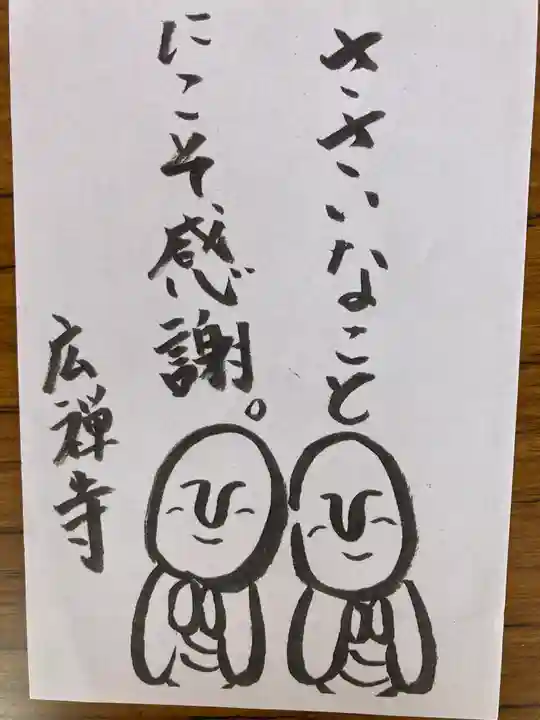 ささいなこと
にこそ、感謝。
広禅寺